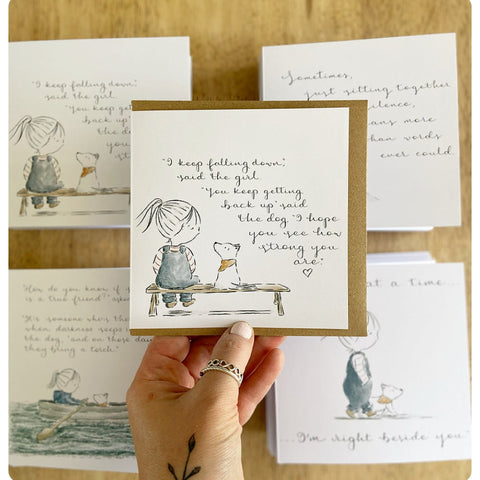 "I keep falling down,"
said the girl.
"You keep getting
back up" said
the do
you
stron
Sometimes,
just sitting together
silence,
ans more
han words
ever could.
"I keep falling down,"
said the girl.
"You keep getting
back up" said
the dog. "I hope
you see how
strong you
are."
"How do you know if s
is a true friend?" aske
"It's someone who's the
when darkness seeps
the dog, "and on those da
they bring a torch."
at a time...
...I'm right beside you."